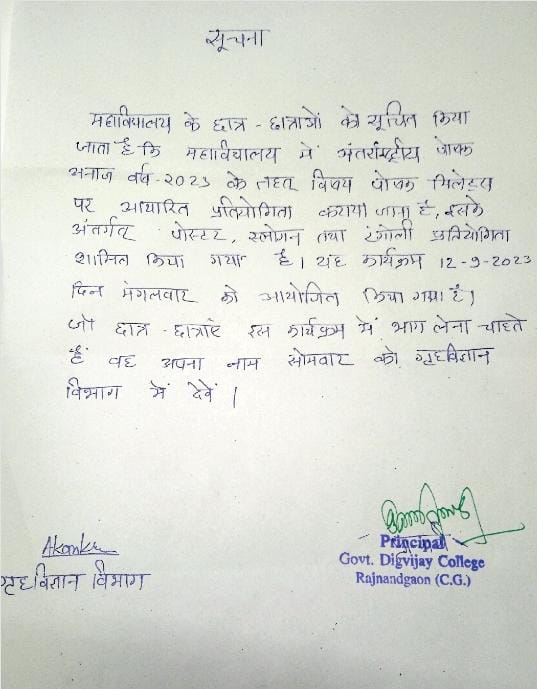 सूचना
महाविद्यालय के छात्र - छात्राओं को सूचित किया
जाता है कि महाविद्यालय में अंतर्राष्ट्रीय पोषक
अनाज वर्ष - 2023 के तहत विषय पोषक मिलेट्स
पर आधारित प्रतियोगिता कराया जाना है, इसके
अंतर्गत पोस्टर, स्लोगन तथा रंगोली प्रतियोगिता
शामिल किया गया है। यह कार्यक्रम 12-9-2023
दिन मंगलवार को आयोजित किया गया है।
जो छात्र - छात्राएं इस कार्यक्रम में भाग लेना चाहते
हैं वह अपना नाम सोमवार को गृहविज्ञान
विभाग में देवें।
गृहविज्ञान विभाग
Principal
Govt. Digvijay College
Rajnandgaon (C.G.)